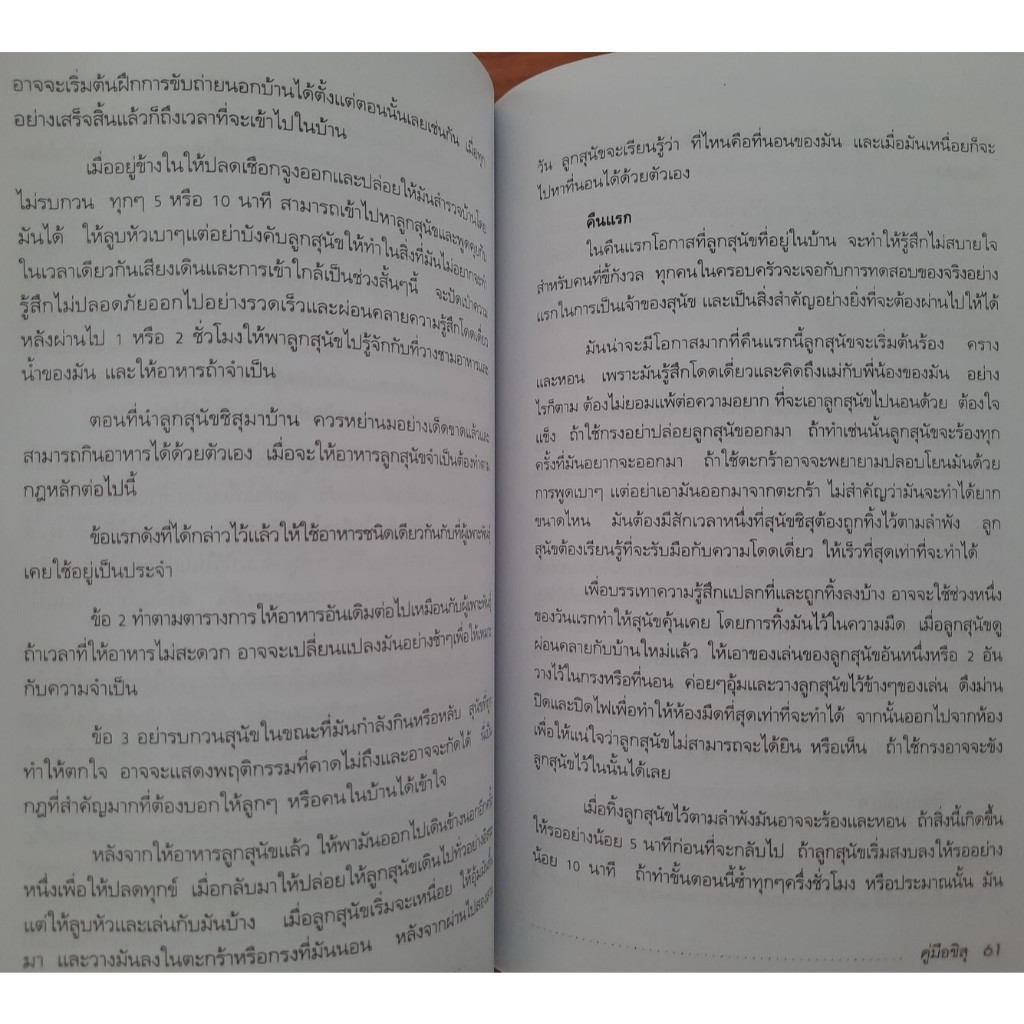 อาจจะเริ่มต้นฝึกการขับถ่ายนอกบ้านได้ตั้งแต่ตอนนั้นเลยเช่นกัน เมื่อทุก
อย่างเสร็จสิ้นแล้วก็ถึงเวลาที่จะเข้าไปในบ้าน
เมื่ออยู่ข้างในให้ปลดเชือกจูงออกและปล่อยให้มันสำรวจบ้านโดย
ไม่รบกวน ทุกๆ 5 หรือ 10 นาที สามารถเข้าไปหาลูกสุนัขและพูดคุยกับ
มันได้ ให้ลูบหัวเบาๆแต่อย่าบังคับลูกสุนัขให้ทำในสิ่งที่มันไม่อยากจะทำ
ในเวลาเดียวกันเสียงเดินและการเข้าใกล้เป็นช่วงสั้นๆนี้ จะปัดเป่าความ
รู้สึกไม่ปลอดภัยออกไปอย่างรวดเร็วและผ่อนคลายความรู้สึกโดดเดี่ยว
หลังผ่านไป 1 หรือ 2 ชั่วโมงให้พาลูกสุนัขไปรู้จักกับที่วางชามอาหารและ
น้ำของมัน และให้อาหารถ้าจำเป็น
ตอนที่นำลูกสุนัขชิสุมาบ้าน ควรหย่านมอย่างเด็ดขาดแล้วและ
สามารถกินอาหารได้ด้วยตัวเอง เมื่อจะให้อาหารลูกสุนัขจำเป็นต้องทำตาม
กฎหลักต่อไปนี้
ข้อแรกดังที่ได้กล่าวไว้แล้วให้ใช้อาหารชนิดเดียวกันกับที่ผู้เพาะพันธุ์
เคยใช้อยู่เป็นประจำ
ข้อ 2 ทำตามตารางการให้อาหารอันเดิมต่อไปเหมือนกับผู้เพาะพันธุ์
ถ้าเวลาที่ให้อาหารไม่สะดวก อาจจะเปลี่ยนแปลงมันอย่างช้าๆเพื่อให้เหมาะ
กับความจำเป็น
ข้อ 3 อย่ารบกวนสุนัขในขณะที่มันกำลังกินหรือหลับ สุนัขที่ถูก
ทำให้ตกใจ อาจจะแสดงพฤติกรรมที่คาดไม่ถึงและอาจจะกัดได้ นี่เป็น
กฎที่สำคัญมากที่ต้องบอกให้ลูกๆ หรือคนในบ้านได้เข้าใจ
หลังจากให้อาหารลูกสุนัขแล้ว ให้พามันออกไปเดินข้างนอกอีกครั้ง
หนึ่งเพื่อให้ปลดทุกข์ เมื่อกลับมาให้ปล่อยให้ลูกสุนัขเดินไปทั่วอย่างอิสระ
แต่ให้ลูบหัวและเล่นกับมันบ้าง เมื่อลูกสุนัขเริ่มจะเหนื่อย ให้อุ้มมันขึ้น
มา และวางมันลงในตะกร้าหรือกรงที่มันนอน หลังจากผ่านไปสอง
วัน ลูกสุนัขจะเรียนรู้ว่า ที่ไหนคือที่นอนของมัน และเมื่อมันเหนื่อยก็จะ
ไปหาที่นอนได้ด้วยตัวเอง
คืนแรก
ในคืนแรกโอกาสที่ลูกสุนัขที่อยู่ในบ้าน จะทำให้รู้สึกไม่สบายใจ
สำหรับคนที่ขี้กังวล ทุกคนในครอบครัวจะเจอกับการทดสอบของจริงอย่าง
แรกในการเป็นเจ้าของสุนัข และเป็นสิ่งสำคัญอย่างยิ่งที่จะต้องผ่านไปให้ได้
มันน่าจะมีโอกาสมากที่คืนแรกนี้ลูกสุนัขจะเริ่มต้นร้อง คราง
และหอน เพราะมันรู้สึกโดดเดี่ยวและคิดถึงแม่กับพี่น้องของมัน อย่าง
ไรก็ตาม ต้องไม่ยอมแพ้ต่อความอยาก ที่จะเอาลูกสุนัขไปนอนด้วย ต้องใจ
แข็ง ถ้าใช้กรงอย่าปล่อยลูกสุนัขออกมา ถ้าทำเช่นนั้นลูกสุนัขจะร้องทุก
ครั้งที่มันอยากจะออกมา ถ้าใช้ตะกร้าอาจจะพยายามปลอบโยนมันด้วย
การพูดเบาๆ แต่อย่าเอามันออกมาจากตะกร้า ไม่สำคัญว่ามันจะทำได้ยาก
ขนาดไหน มันต้องมีสักเวลาหนึ่งที่สุนัขชิสุต้องถูกทิ้งไว้ตามลำพัง ลูก
สุนัขต้องเรียนรู้ที่จะรับมือกับความโดดเดี่ยว ให้เร็วที่สุดเท่าที่จะทำได้
เพื่อบรรเทาความรู้สึกแปลกที่และถูกทิ้งลงบ้าง อาจจะใช้ช่วงหนึ่ง
ของวันแรกทำให้สุนัขคุ้นเคย โดยการทิ้งมันไว้ในความมืด เมื่อลูกสุนัขดู
ผ่อนคลายกับบ้านใหม่แล้ว ให้เอาของเล่นของลูกสุนัขอันหนึ่งหรือ 2 อัน
วางไว้ในกรงหรือที่นอน ค่อยๆอุ้มและวางลูกสุนัขไว้ข้างๆของเล่น ดึงม่าน
ปิดและปิดไฟเพื่อทำให้ห้องมืดที่สุดเท่าที่จะทำได้ จากนั้นออกไปจากห้อง
เพื่อให้แน่ใจว่าลูกสุนัขไม่สามารถจะได้ยิน หรือเห็น ถ้าใช้กรงอาจจะขัง
ลูกสุนัขไว้ในนั้นได้เลย
เมื่อทิ้งลูกสุนัขไว้ตามลำพังมันอาจจะร้องและหอน ถ้าสิ่งนี้เกิดขึ้น
ให้รออย่างน้อย 5 นาทีก่อนที่จะกลับไป ถ้าลูกสุนัขเริ่มสงบลงให้รออย่าง
น้อย 10 นาที ถ้าทำขั้นตอนนี้ซ้ำทุกๆครึ่งชั่วโมง หรือประมาณนั้น มัน
คู่มือชิสุ 61